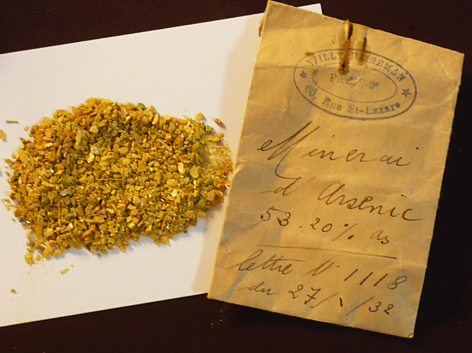 PARIS
Rue St-Lazare
Minerai
d'Arsenic
53.20% as
lettre N° 1118
du 27/ /32